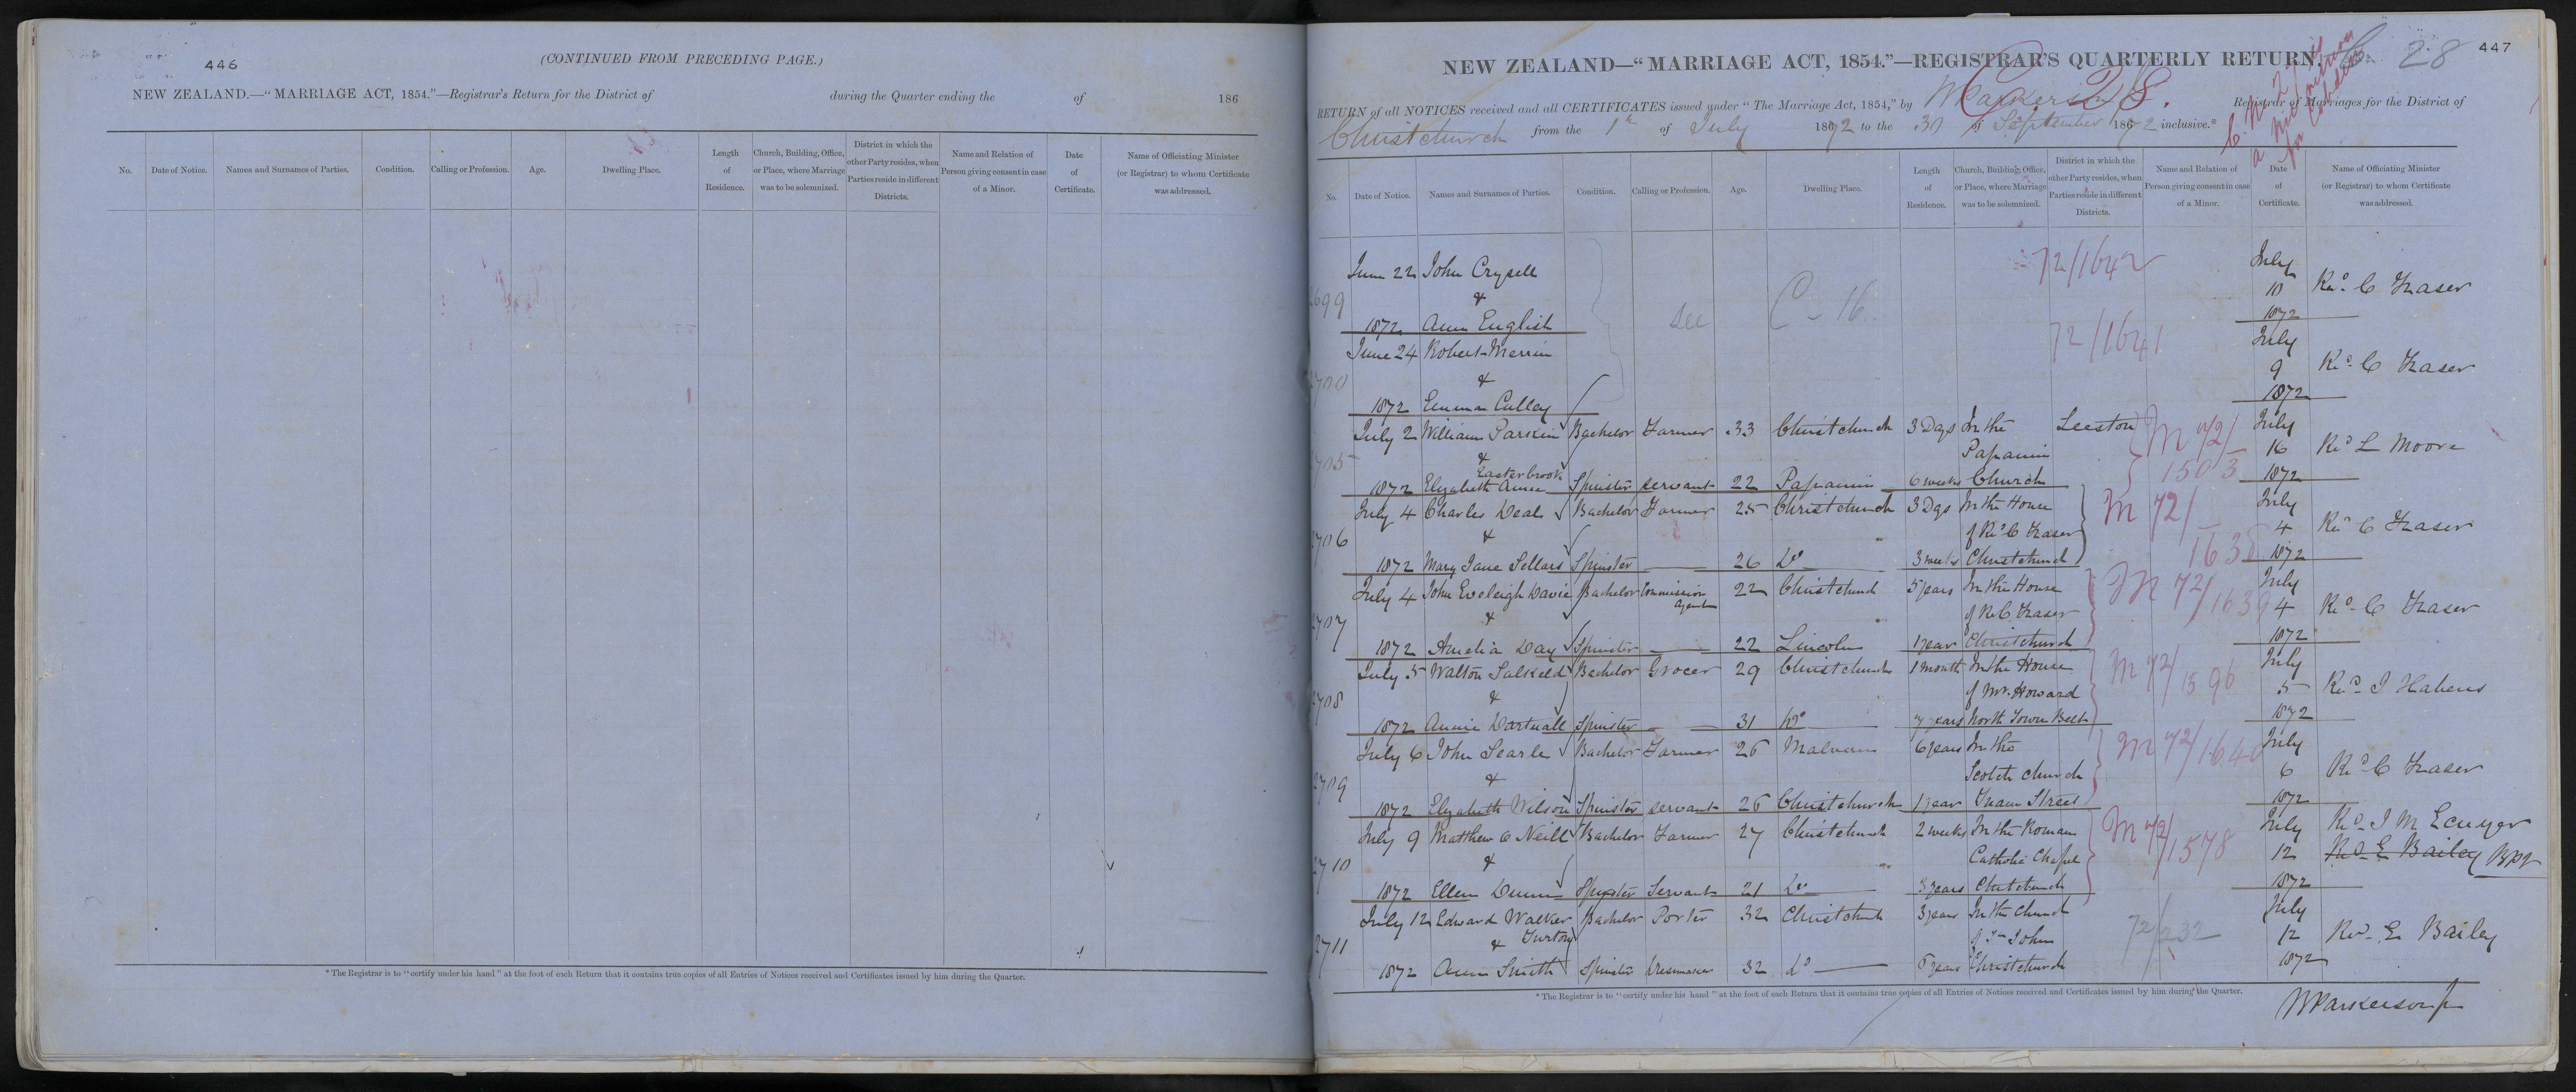 446
(CONTINUED FROM PRECEDING PAGE.)
NEW ZEALAND.—“MARRIAGE ACT, 1854.”—Registrar's Return for the District of during the Quarter ending the of 186
No. Date of Notice. Names and Surnames of Parties. Condition. Calling or Profession. Age. Dwelling Place. Length of Residence. Church, Building, Office, or Place, where Marriage was to be solemnized. District in which the other Party resides, when Parties reside in different Districts. Name and Relation of Person giving consent in case of a Minor. Date of Certificate. Name of Officiating Minister (or Registrar) to whom Certificate was addressed.
* The Registrar is to “certify under his hand” at the foot of each Return that it contains true copies of all Entries of Notices received and Certificates issued by him during the Quarter.
447
C 28
NEW ZEALAND—“MARRIAGE ACT, 1854.”—REGISTRAR'S QUARTERLY RETURN.
C. 28.
RETURN of all NOTICES received and all CERTIFICATES issued under “The Marriage Act, 1854,” by Registrar of Marriages for the District of
Christchurch from the 1st of July 1872 to the 30 of September 1872 inclusive.*
No. Date of Notice. Names and Surnames of Parties. Condition. Calling or Profession. Age. Dwelling Place. Length of Residence. Church, Building, Office, or Place, where Marriage was to be solemnized. District in which the other Party resides, when Parties reside in different Districts. Name and Relation of Person giving consent in case of a Minor. Date of Certificate. Name of Officiating Minister (or Registrar) to whom Certificate was addressed.
June 22 John Crysell 72/1642 July
2699 & see C-16. 10 Revd. C Fraser
1872 Ann English 1872
June 24 Robert Merrin 72/1641 July
2700 & 9 Revd. C Fraser
1872 Emma Culley 1872
July 2 William Parskin Bachelor Farmer 33 Christchurch 3 Days In the Leeston M 72/ July
2705 & Papanui 1503 16 Revd L Moore
Easterbrook
1872 Elizabeth Anne Spinster servant 22 Papanui 6 weeks Church 1872
July 4 Charles Deal Bachelor Farmer 25 Christchurch 3 Dys In the House M 72/ July
2706 & of Revd C Fraser 1638 4 Revd C Fraser
1872 Mary Jane Sellars Spinster — 26 Do 3 weeks Christchurch 1872
July 4 John Eveleigh Davie Bachelor Commission Agent 22 Christchurch 5 years In the House M 72/1639 July
2707 & of Rev C. Fraser 4 Revd C Fraser
1872 Amelia Day Spinster — 22 Lincoln 1 year Christchurch 1872
July 5 Walton Salkeld Bachelor Grocer 29 Christchurch 1 month In the House M 72/1596 July
2708 & of Mr. Howard 5 Revd J Habens
1872 Annie Dartnall Spinster — 31 Do 7 years North Town Belt 1872
July 6 John Searle Bachelor Farmer 26 Malvern 6 years In the M 72/1640 July
2709 & Scotch church 6 Revd C Fraser
1872 Elizabeth Wilson Spinster servant 26 Christchurch 1 year Tuam Street 1872
July 9 Matthew O Neill Bachelor Farmer 27 Christchurch 2 weeks In the Roman M 72/1578 July Revd. J M Ecuyer
2710 & Catholic Chapel 12 Revd E Bailey
1872 Ellen Dunn Spinster Servant 21 Do 3 years Christchurch 1872
July 12 Edward Walker Bachelor Porter 32 Christchurch 3 years In the Church 72/232 July
2711 & Turton of St John 12 Rev. E Bailey
1872 Ann Smith Spinster Dressmaker 32 Do 6 years Christchurch 1872
* The Registrar is to “certify under his hand” at the foot of each Return that it contains true copies of all Entries of Notices received and Certificates issued by him during the Quarter.